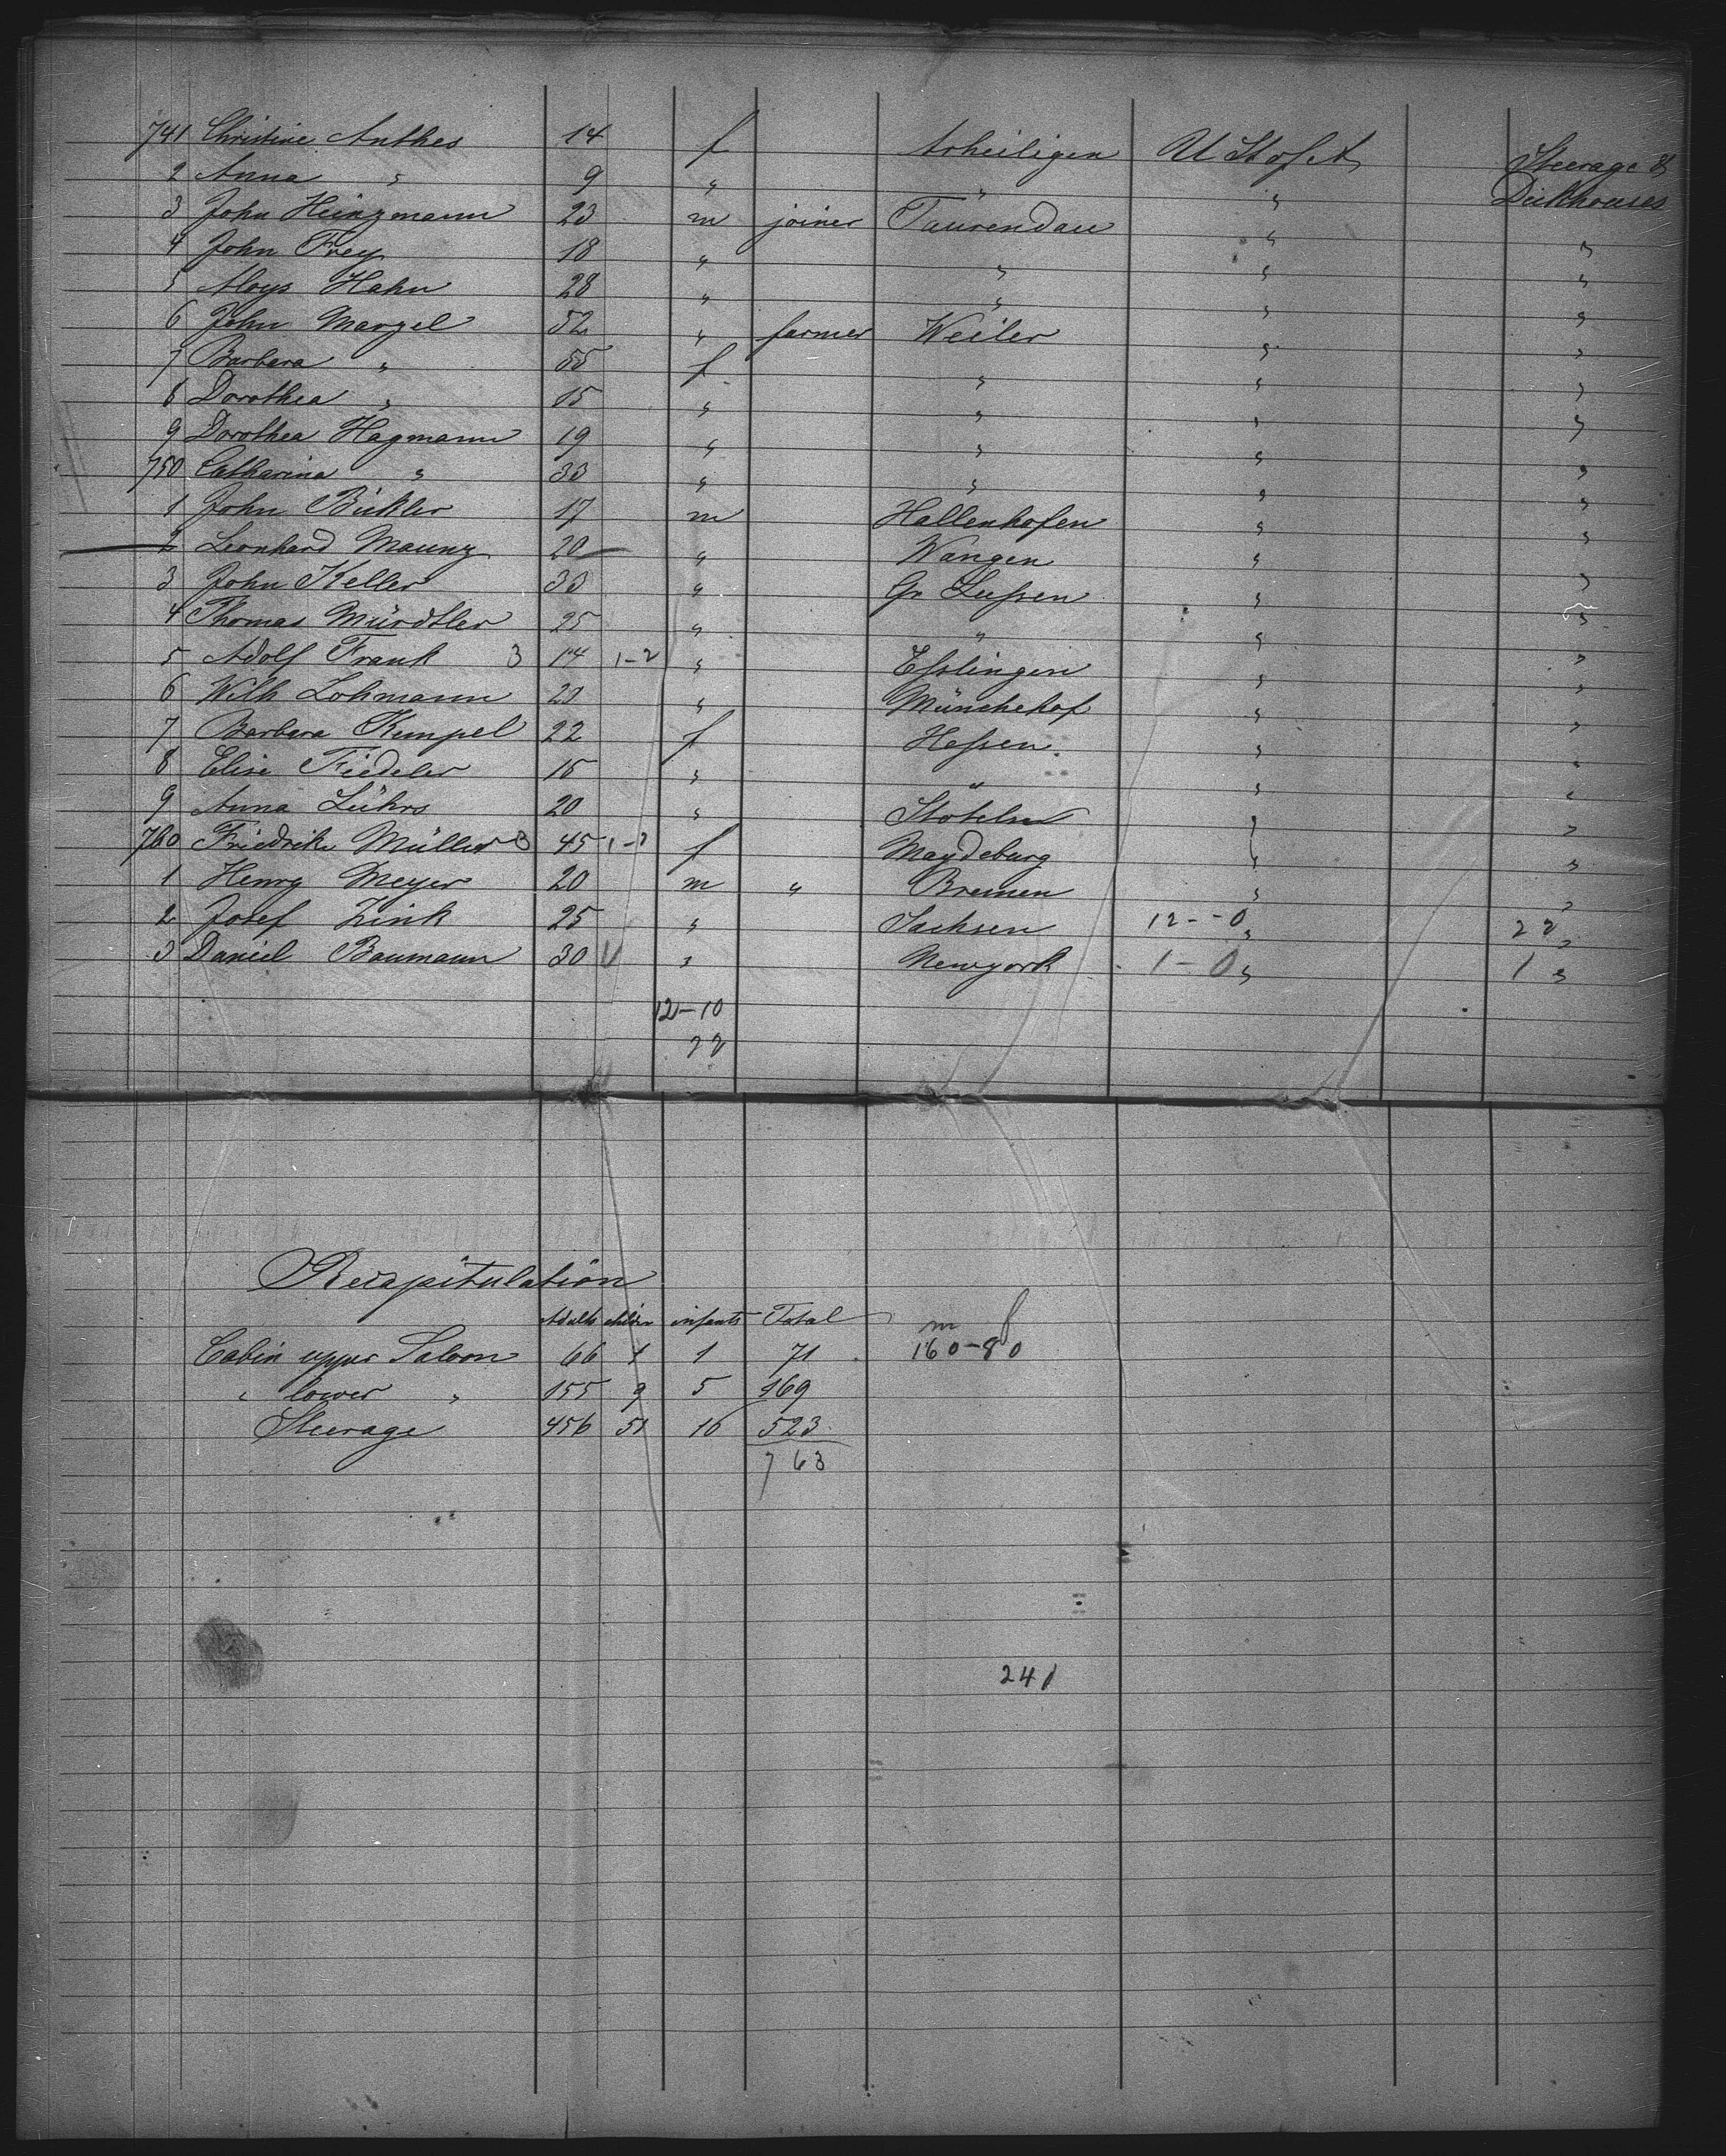 741 Christine Anthes 14 f Arheiligen U St of A Steerage &
2 Anna " 9 " " " Deckhouses
3 John Heinzmann 23 m joiner Taurendau " "
4 John Frey 18 " " " "
5 Aloys Hahn 28 " " " "
6 John Margel 52 " farmer Weiler " "
7 Barbara " 55 f " " "
8 Dorothea " 15 " " " "
9 Dorothea Hagmann 19 " " " "
750 Catharina " 33 " " " "
1 John Bickler 17 m Hallenhofen " "
2 Leonhard Maunz 20 " Wangen " "
3 John Keller 33 " Gr Lussen " "
4 Thomas Mürdtler 25 " " " "
5 Adolf Frank 3 14 1-2 " Esslingen " "
6 Wilh Lohmann 20 " Münchehof " "
7 Barbara Kempel 22 f Hessen " "
8 Elise Fiedeler 15 " " " "
9 Anna Lührs 20 " Stotel " "
760 Friedrike Müller 3 45 1-2 f Magdeburg " "
1 Henry Meyer 20 m " Bremen " "
2 Josef Zink 25 " Sachsen 12--0 " 22 "
3 Daniel Baumann 30 U " Newyork 1-0 " 1 "
12-10
22
Recapitulation
Adults childn infants Total m f
Cabin upper Saloon 66 4 1 71 160-80
" lower " 155 9 5 169
Steerage 456 51 16 523
763
241